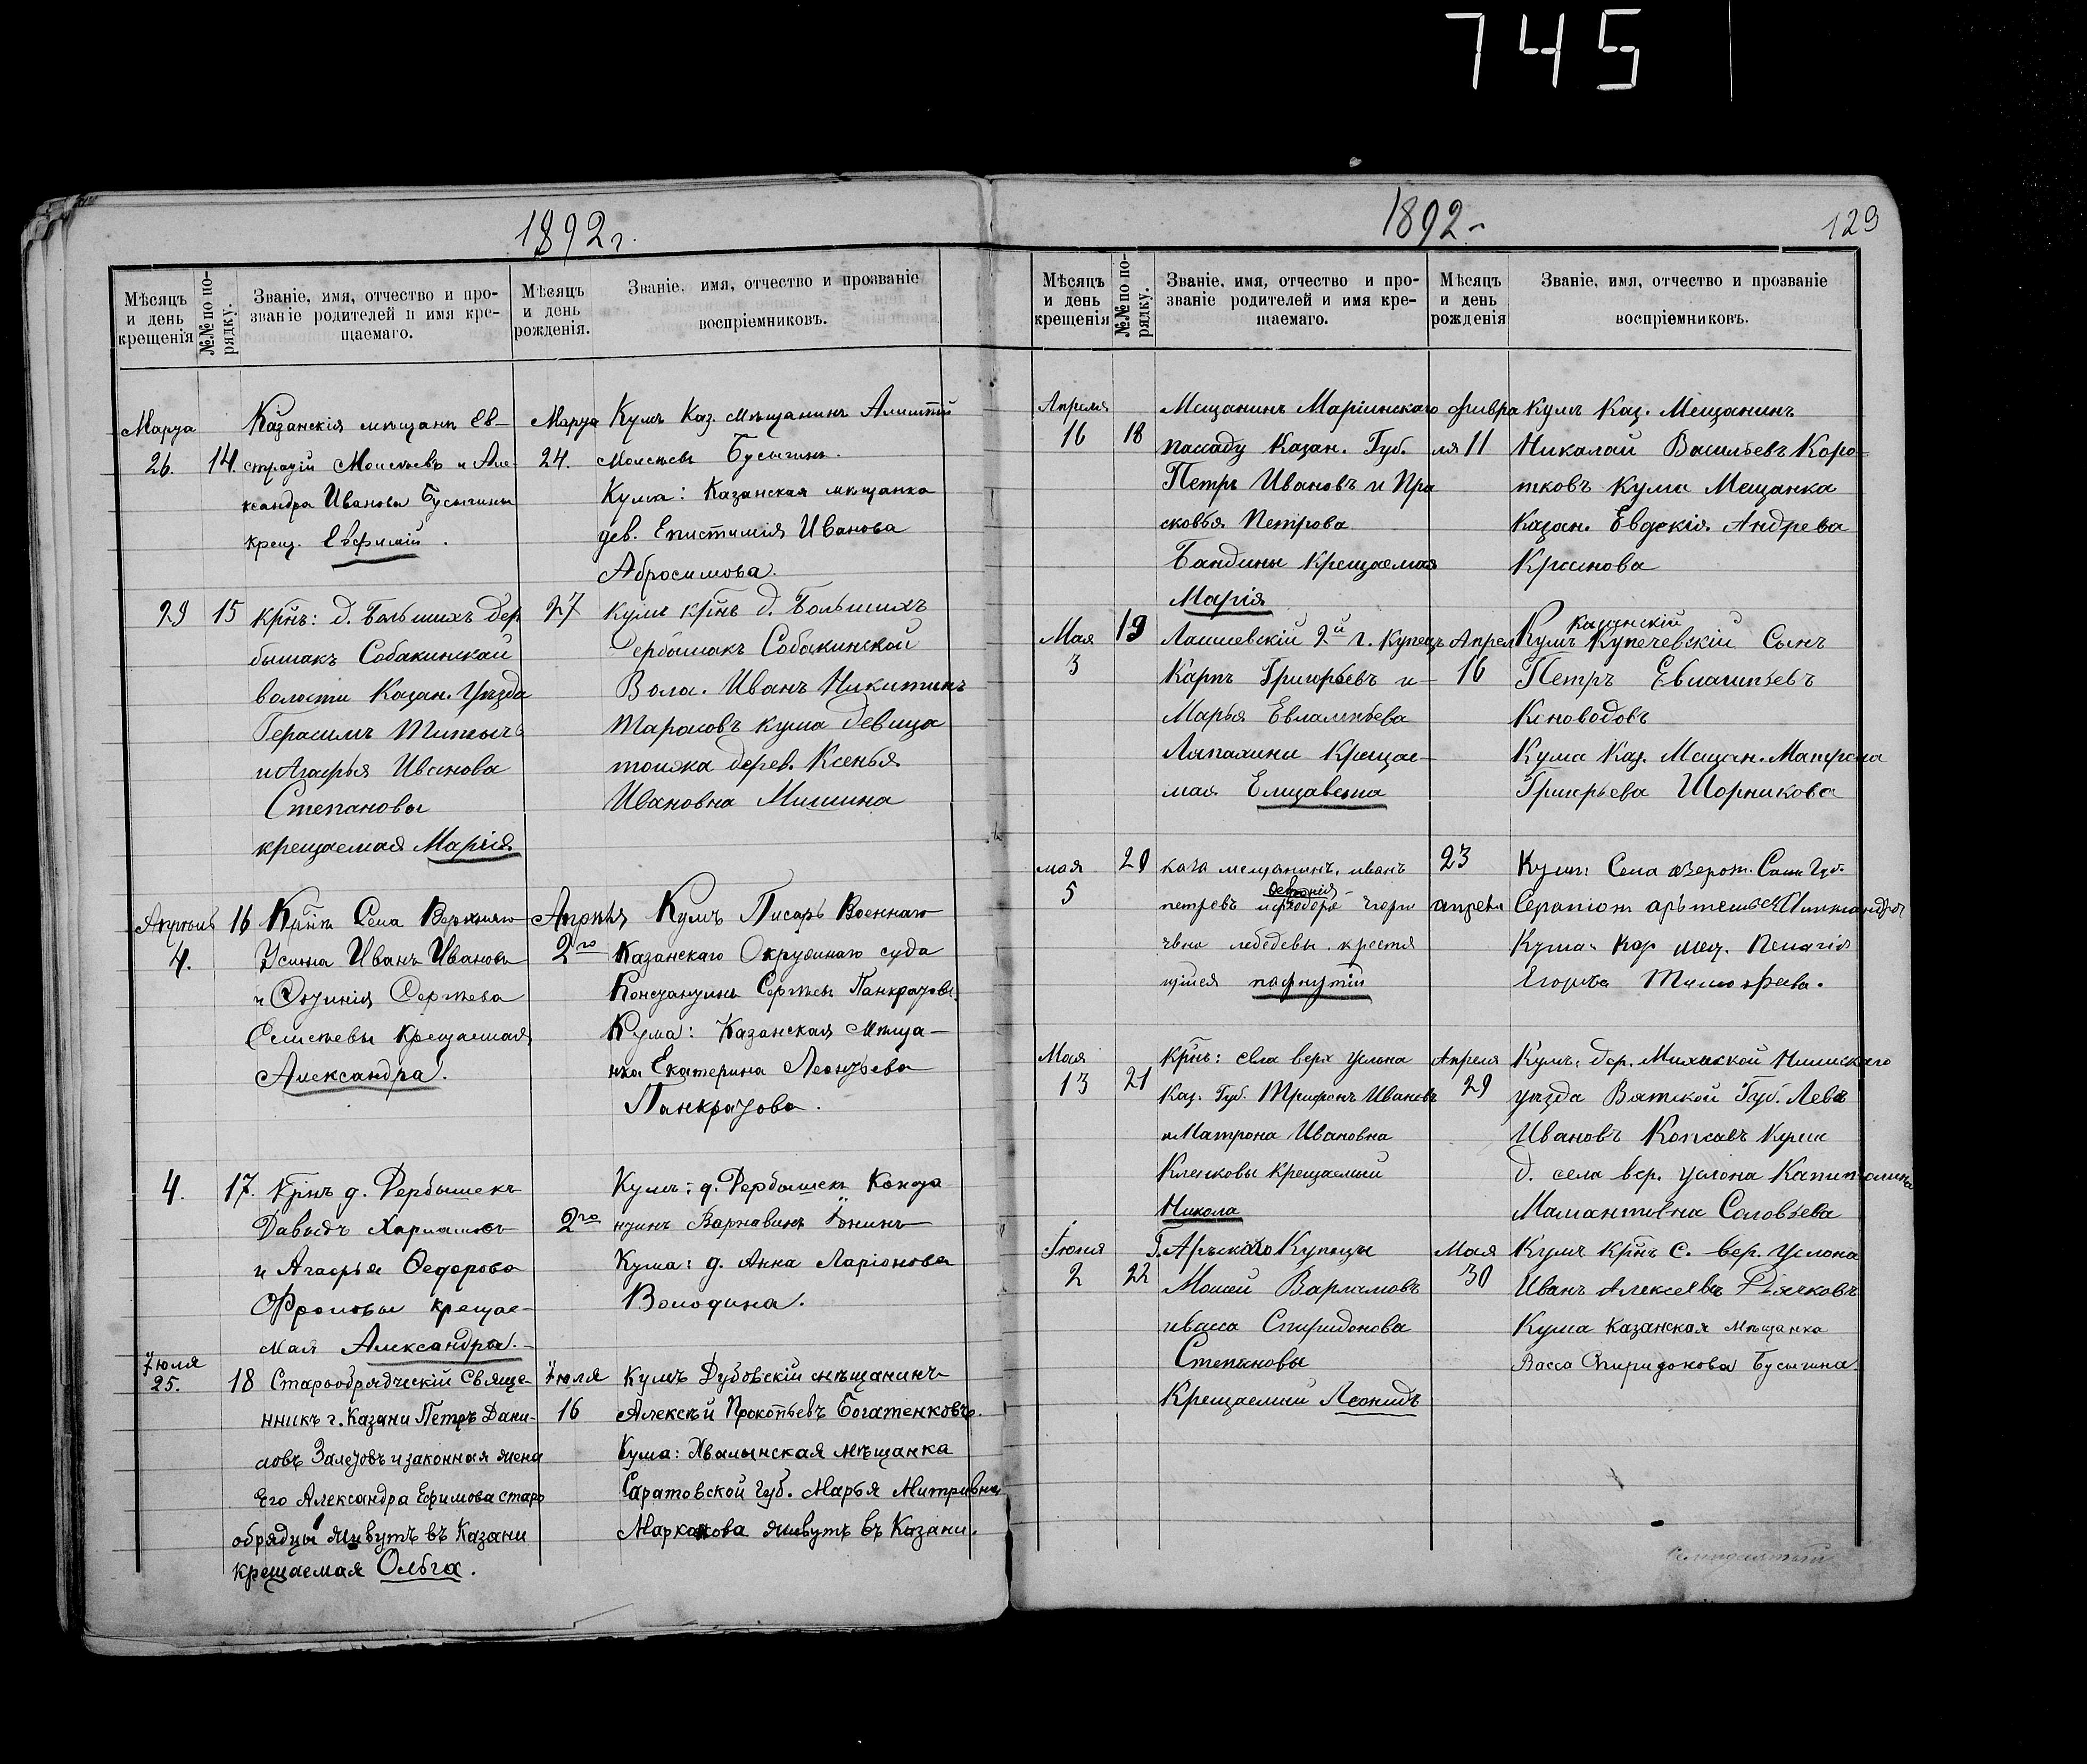 745
1892г.
Мѣсяцъ и день крещенія
№№ по порядку.
Званіе, имя, отчество и про-
званіе родителей и имя кре-
щаемаго.
Мѣсяцъ и день рожденія.
Званіе, имя, отчество и прозваніе
воспріемниковъ.
Марта 26. 14.
Казанскія мѣщане Ев-
стратій Моисѣевъ и Але-
ксандра Иванова Бусыгины
крещ. Евфимій.
Марта 24.
Кумъ Каз. мѣщанинъ
Моисѣевъ Бусыгинъ.
Кума: Казанская мѣщанка
дѣв. Епистимія Иванова
Абросимова.
29 15
крнъ: д. Большихъ Дер
бышакъ Собакинской
волости Казан. Уѣзда
Герасимъ
и Агафья Иванова
Степановы
крещаемая Марія.
27
кумъ крнъ д. Большихъ
Дербышакъ Собакинской
Воло. Иванъ Никитинъ
Тарасовъ кума девица
тойжа дерев. Ксенья
Ивановна Мишина
4. 16
Села Верхняго
Услона Иванъ Иванова
и Сергѣева
Елисѣевы крещаемая
Александра.
Апрѣля 2го
Кумъ Писарь Военнаго
Казанскаго Окружнаго суда
Константинъ Сергѣевъ Панкратовъ.
Кума: Казанская Мѣща-
нка Екатерина Леонтьева
Панкратова.
4. 17.
Крнъ д. Дербышекъ
Давыдъ Харламовъ
и Агафья Федорова
Фроловы крещае-
мая Александра.
2го
Кумъ: д. Дербышекъ Конста
нтинъ Варнавинъ
Кума: д. Анна Ларіонова
Володина.
Іюля 25. 18
Старообрядческій Свяще-
нникъ г. Казани Петръ Дани-
ловъ Залетовъ и законная жена
Его Александра Ефимова старо
обрядцы живутъ въ Казани
крещаемая Ольга.
Іюля 16
Кумъ Дубовскій мѣщанинъ
Алексѣй Прокопьевъ Богатенковъ.
Кума: Хвалынская мѣщанка
Саратовской губ. Марья Митривна
Маркова живутъ въ Казани.
1892
129
Мѣсяцъ и день крещенія
№№ по порядку.
Званіе, имя, отчество и про-
званіе родителей и имя кре-
щаемаго.
Мѣсяцъ и день рожденія
Званіе, имя, отчество и прозваніе
воспріемниковъ.
Апреля 16 18
Мещанинъ Маріинскаго
пасаду Казан. Губ.
Петръ Ивановъ и Пра
сковья Петрова
Бандины Крещаемая
Марія
февра ля 11
Кумъ Каз. Мещанинъ
Никалай Васильевъ Коро-
тковъ Кума Мещанка
Казан. Евдокія Андрева
Мая 3 19
Лаишевскій 2й г. Купецъ
Карпъ Григорьевъ и
Марья Евлампьева
Лапахины Крещае-
мая Елизавета
Апрел 16
Казанскій
Кумъ Купечевскій Сынъ
Петръ Евлампьевъ
Коноводовъ
Кума Каз. Мещан. Матрена
Григорьева Шорникова
мая 5 20
каза мещанинъ иванъ
петревъ
лебедевы
пафнутій
23 апреля
Кумъ: Села
Кума каз мещ. Пелагія
Мая 13 21
Крнъ: села верх услона
Каз. Губ. Трифонъ Ивановъ
и Матрона Ивановна
Клековы Крещаемый
Никола
Апреля 29
Кумъ. дер.
уѣзда Вятской Губ. Левъ
Ивановъ
д. села вер. услона Капитолина
Мамантовна Соловьева
Іюня 2 22
Г. Арскаго Купецы
Моисей Варламовъ
и васса Спиридонова
Степановы
Крещаемый Леонидъ
Мая 30
Кумъ Крнъ С. вер. Услона
Иванъ Алексеевъ Дьячковъ
Кума Казанская мѣщанка
Васса Спиридонова Бусыгина